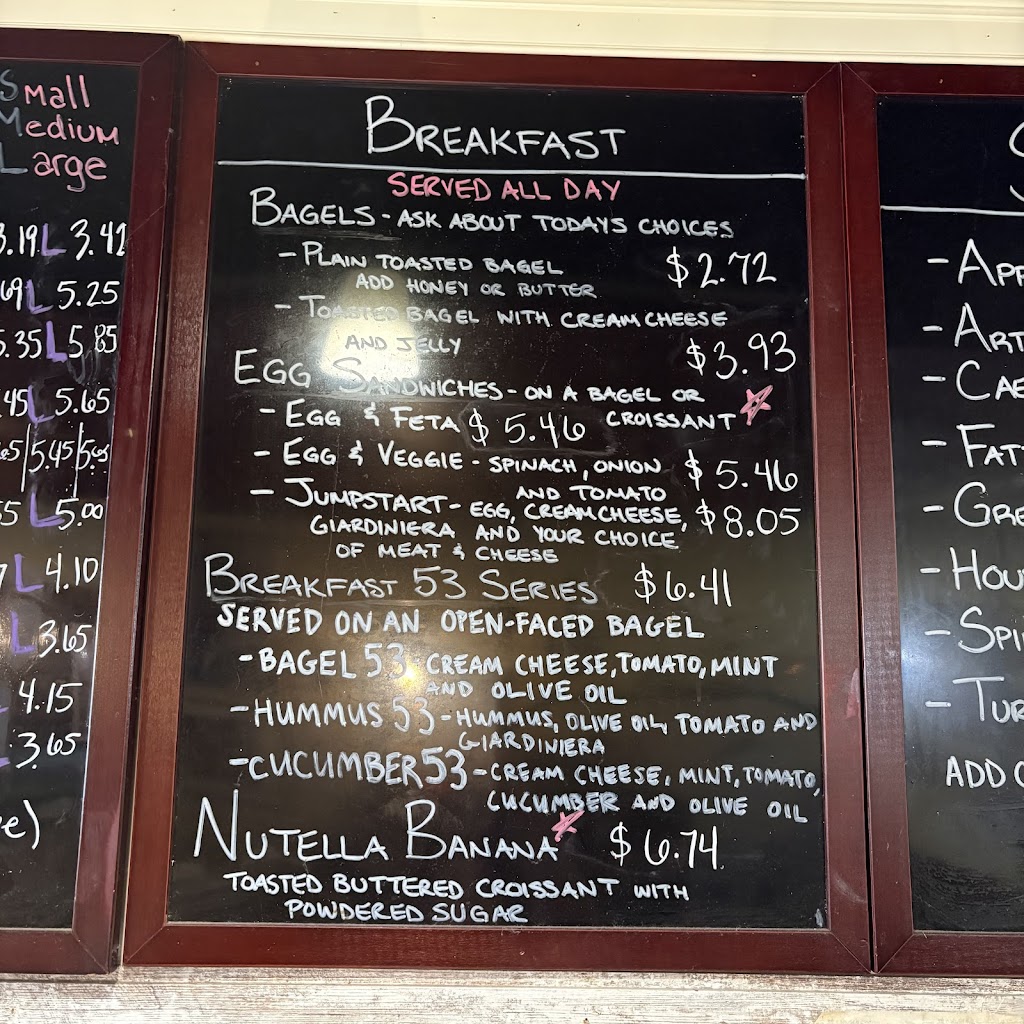 Small
Medium
Large
3.19 L 3.41
69 L 5.25
5.35 L 5.85
.45 L 5.65
5.45
L 5.00
L 4.10
L 3.65
4.15
3.65
BREAKFAST
SERVED ALL DAY
BAGELS - ASK ABOUT TODAYS CHOICES
- PLAIN TOASTED BAGEL $2.72
ADD HONEY OR BUTTER
- TOASTED BAGEL WITH CREAM CHEESE
AND JELLY $3.93
EGG SANDWICHES - ON A BAGEL OR
CROISSANT
- EGG & FETA $5.46
- EGG & VEGGIE - SPINACH, ONION $5.46
AND TOMATO
- JUMPSTART - EGG, CREAM CHEESE, $8.05
GIARDINIERA AND YOUR CHOICE
OF MEAT & CHEESE
BREAKFAST 53 SERIES $6.41
SERVED ON AN OPEN-FACED BAGEL
- BAGEL 53 CREAM CHEESE, TOMATO, MINT
AND OLIVE OIL
- HUMMUS 53 - HUMMUS, OLIVE OIL, TOMATO AND
GIARDINIERA
- CUCUMBER 53 - CREAM CHEESE, MINT, TOMATO,
CUCUMBER AND OLIVE OIL
NUTELLA BANANA $6.74
TOASTED BUTTERED CROISSANT WITH
POWDERED SUGAR
- APP
- ART
- CAE
- FAT
- GRE
- HOU
- SPI
- TUR
ADD